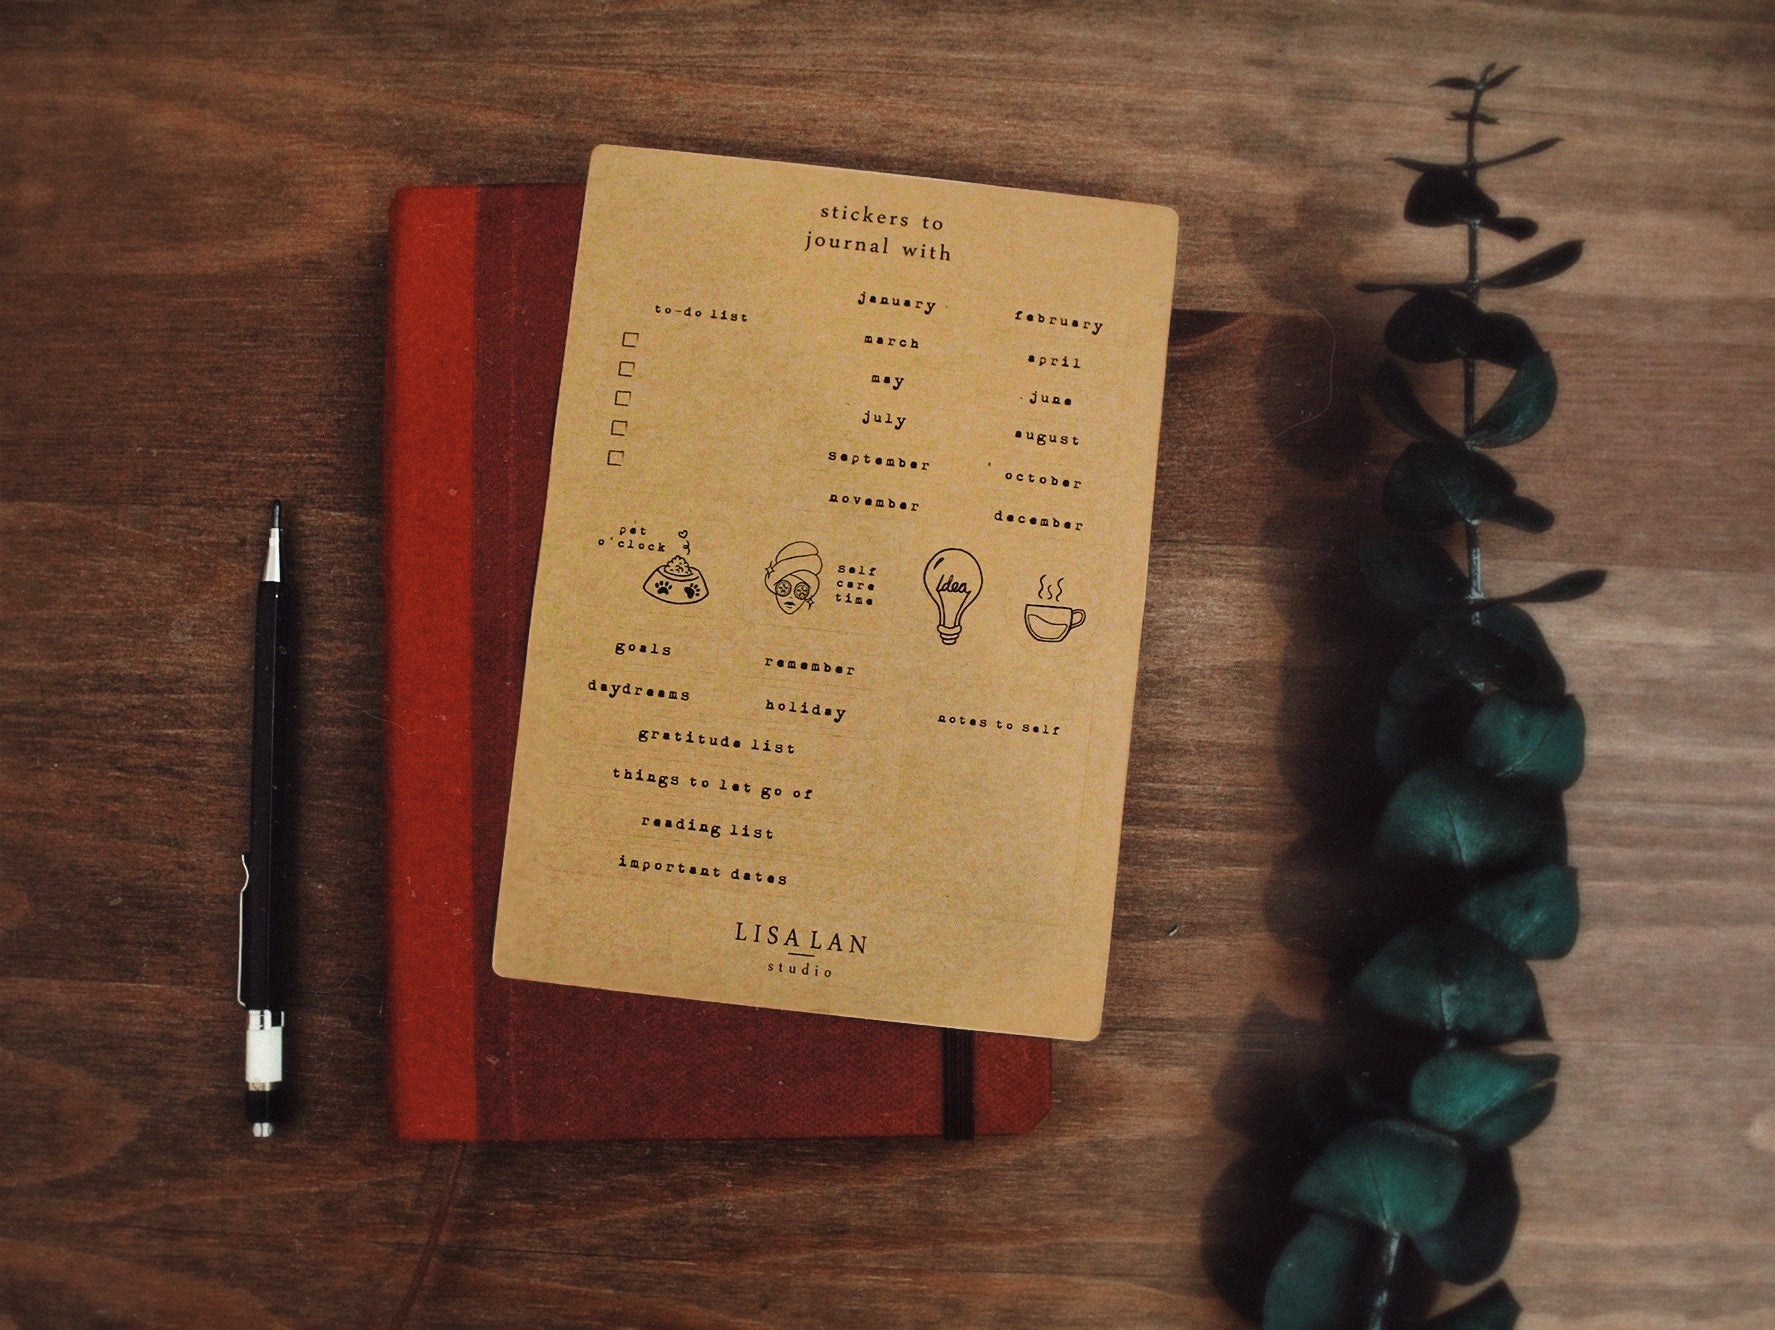 stickers to
journal with
to-do list
january
february
march
april
may
june
july
august
september
october
november
december
pet
o'clock
self
care
time
Idea
goals
remember
daydreams
holiday
notes to self
gratitude list
things to let go of
reading list
important dates
LISA LAN
studio